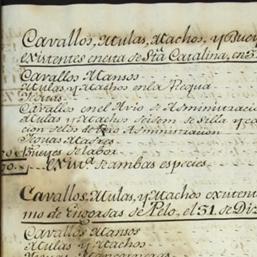 Cavallos, Mulas, Machos, y Buey
existentes en esta de Sta. Catalina, en 3
Cavallos Mansos
Mulas, y Machos en la Requa
Yeguas
Cavallos en el Avio de Administracio
Mulas y Machos de Silla y ca
cion de Administracion
Yeguas Madres
Bueyes de labor
de ambas especies
Cavallos, Mulas, y Machos existente
mo de Engordas de Pelo, el 31 de Diz
Cavallos Mansos
Mulas y Machos